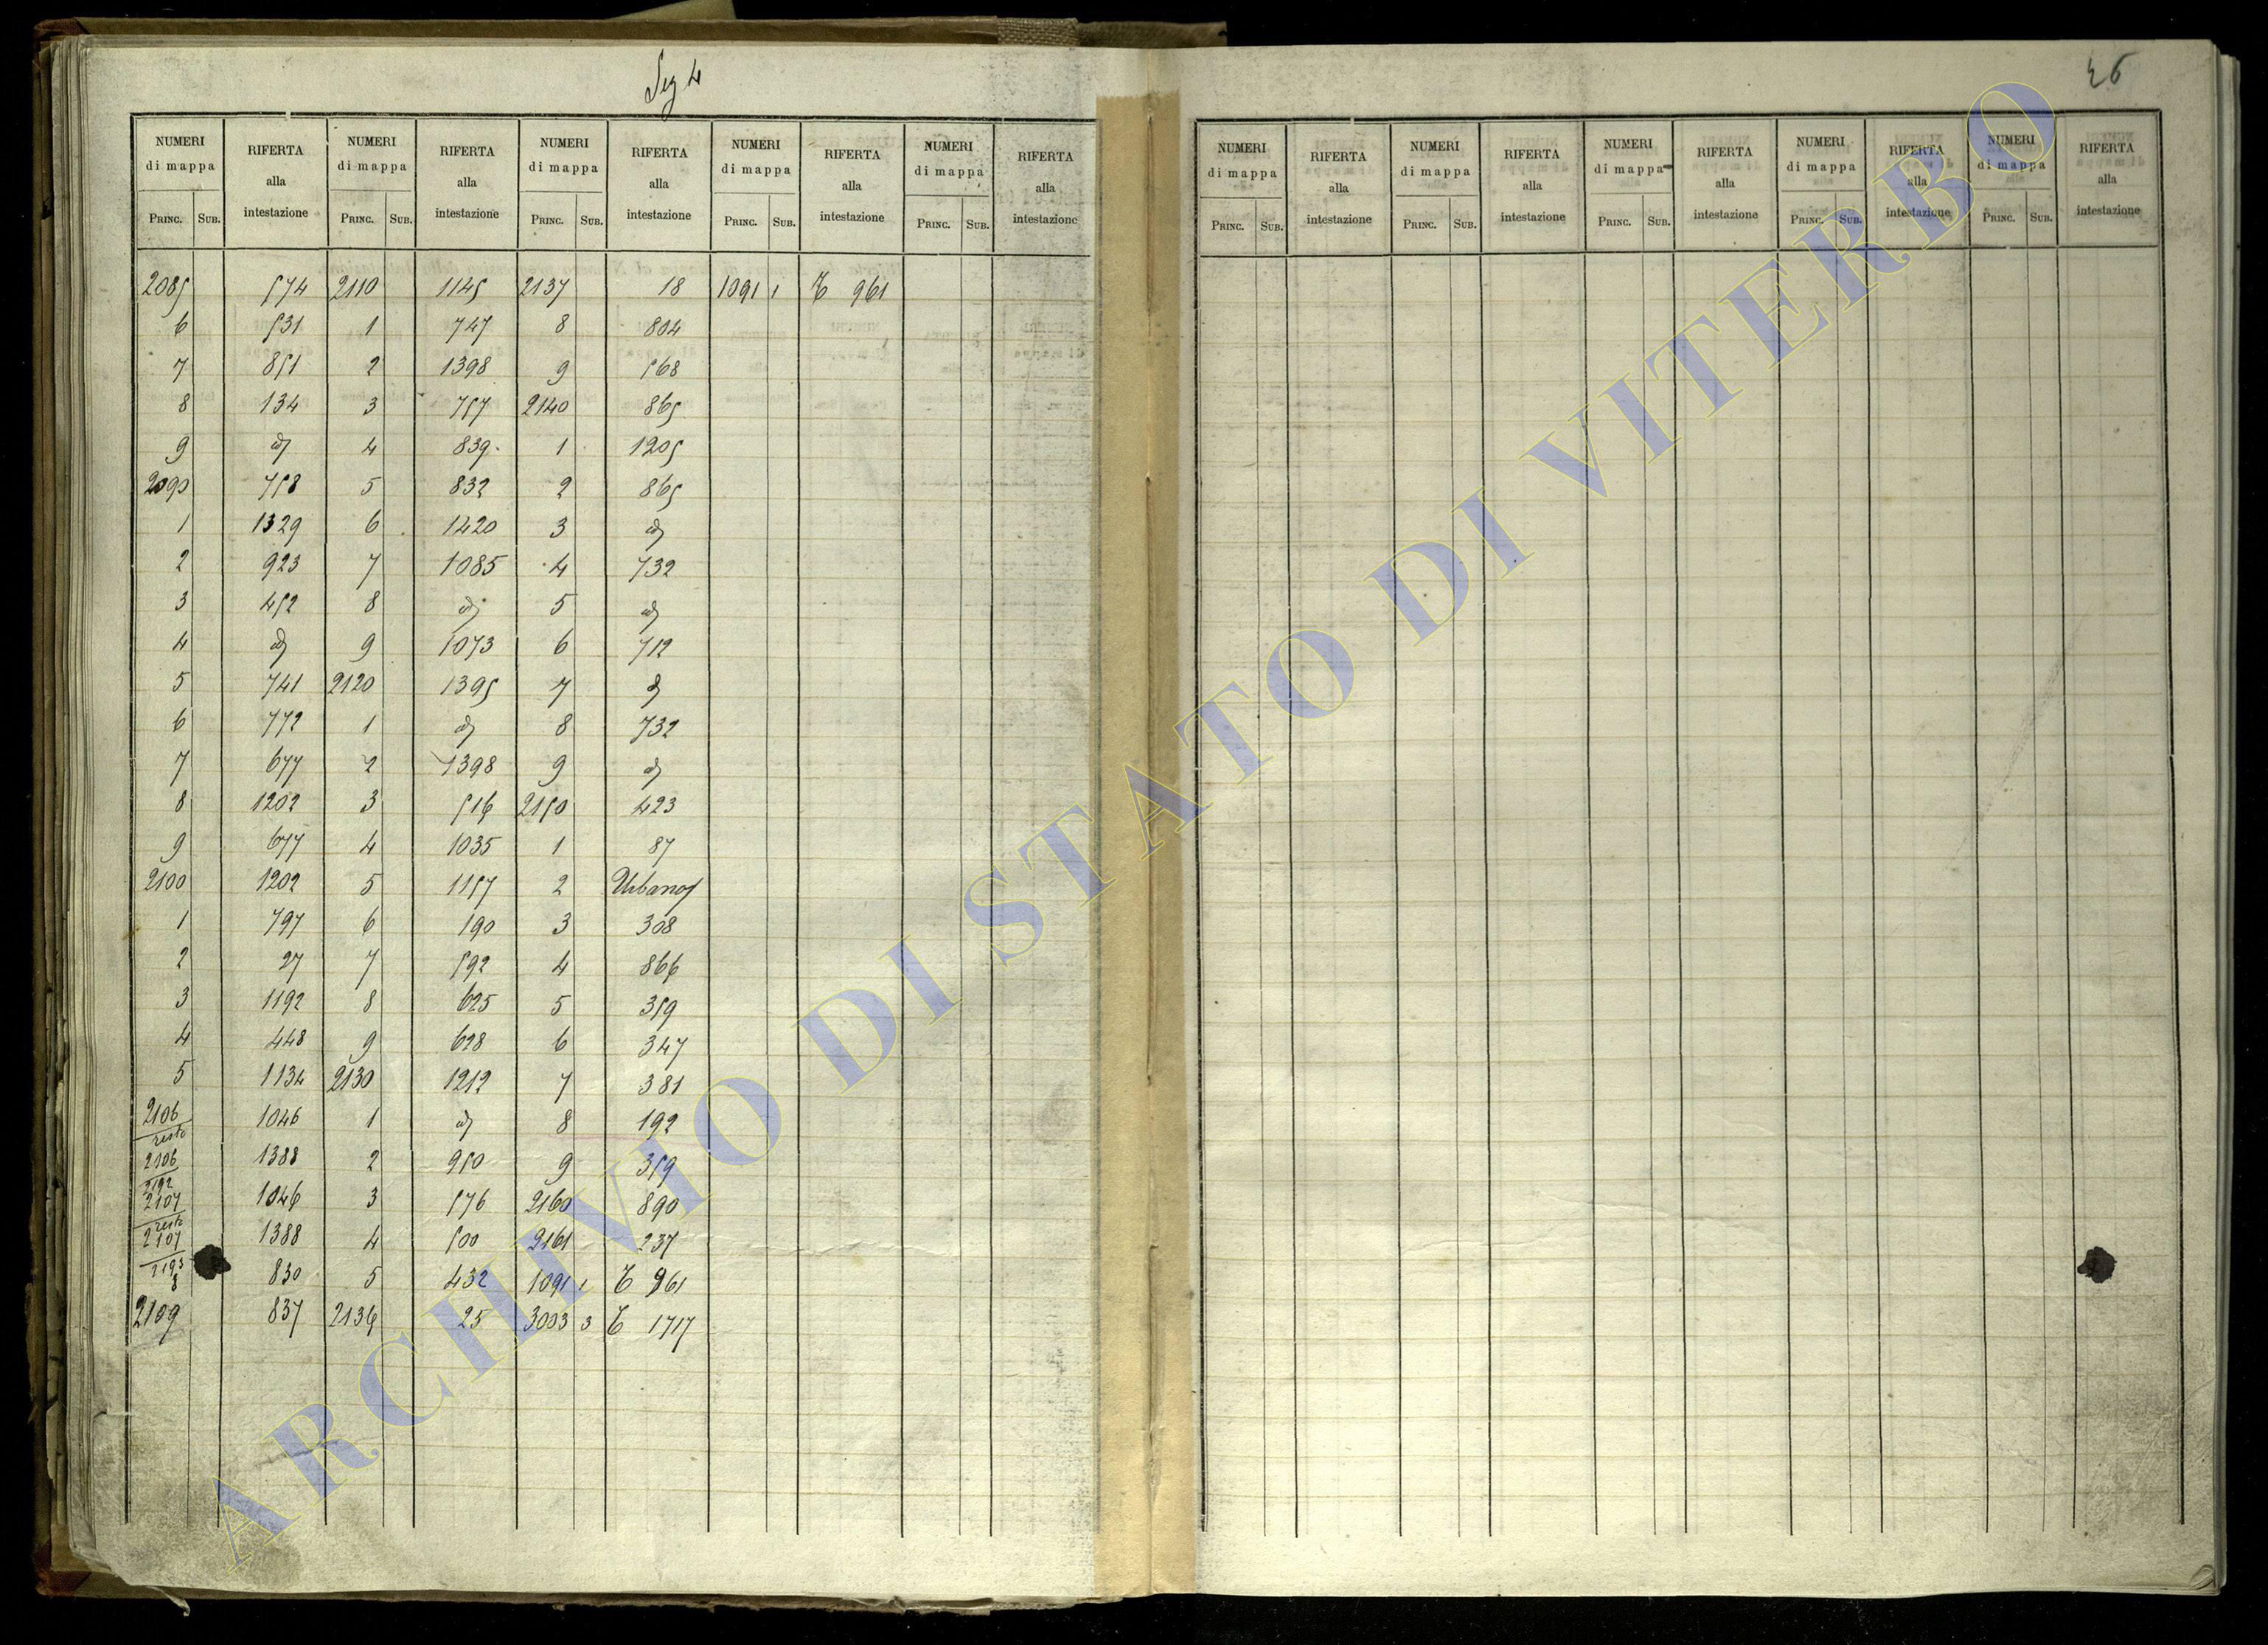 Seg 4
26
NUMERI di mappa RIFERTA alla intestazione NUMERI di mappa RIFERTA alla intestazione NUMERI di mappa RIFERTA alla intestazione NUMERI di mappa RIFERTA alla intestazione NUMERI di mappa RIFERTA alla intestazione
PRINC. SUB. PRINC. SUB. PRINC. SUB. PRINC. SUB. PRINC. SUB.
2085 574 2110 1145 2137 18 1091 1 T 961
6 531 1 747 8 804
7 851 2 1398 9 568
8 134 3 757 2140 865
9 id 4 839 1 1205
2090 758 5 832 2 865
1 1329 6 1420 3 id
2 923 7 1085 4 732
3 452 8 id 5 id
4 id 9 1073 6 712
5 741 2120 1395 7 id
6 772 1 id 8 732
7 677 2 1398 9 id
8 1202 3 516 2150 423
9 677 4 1035 1 87
2100 1202 5 1157 2 Urbano
1 797 6 190 3 308
2 27 7 592 4 866
3 1192 8 625 5 359
4 448 9 628 6 347
5 1134 2130 1212 7 381
2106 resto 1046 1 id 8 192
2106 2192 1388 2 950 9 359
2107 resto 1046 3 576 2160 890
2107 2193 1388 4 500 2161 237
8 830 5 432 1091 1 T 961
2109 837 2136 25 3003 3 T 1717
NUMERI di mappa RIFERTA alla intestazione NUMERI di mappa RIFERTA alla intestazione NUMERI di mappa RIFERTA alla intestazione NUMERI di mappa RIFERTA alla intestazione NUMERI di mappa RIFERTA alla intestazione
PRINC. SUB. PRINC. SUB. PRINC. SUB. PRINC. SUB. PRINC. SUB.
ARCHIVIO DI STATO DI VITERBO